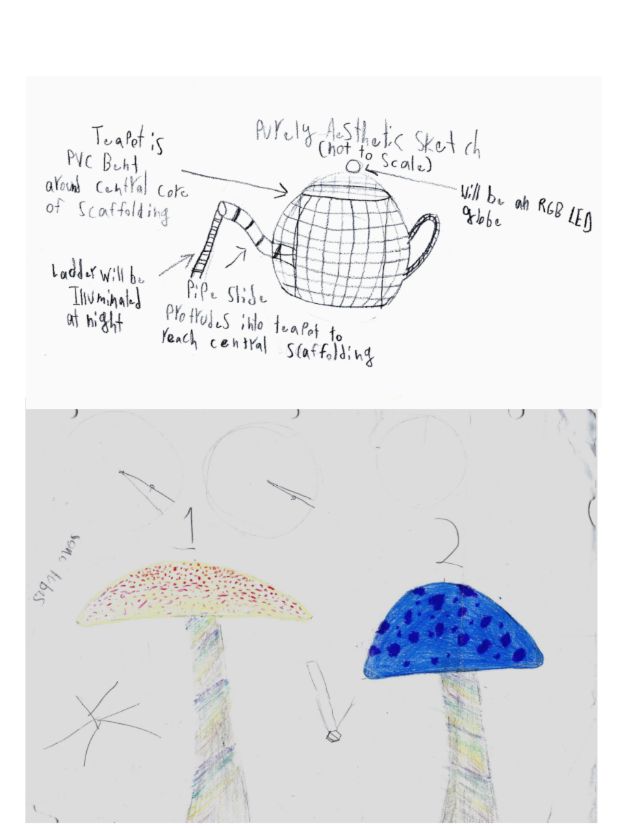 Purely Aesthetic Sketch
(not to Scale)
Teapot is
PVC Bent
around central core
of Scaffolding
Will be an RGB LED
globe
Ladder will be
Illuminated
at night
Pipe Slide
Protrudes into teapot to
reach central scaffolding
1
2